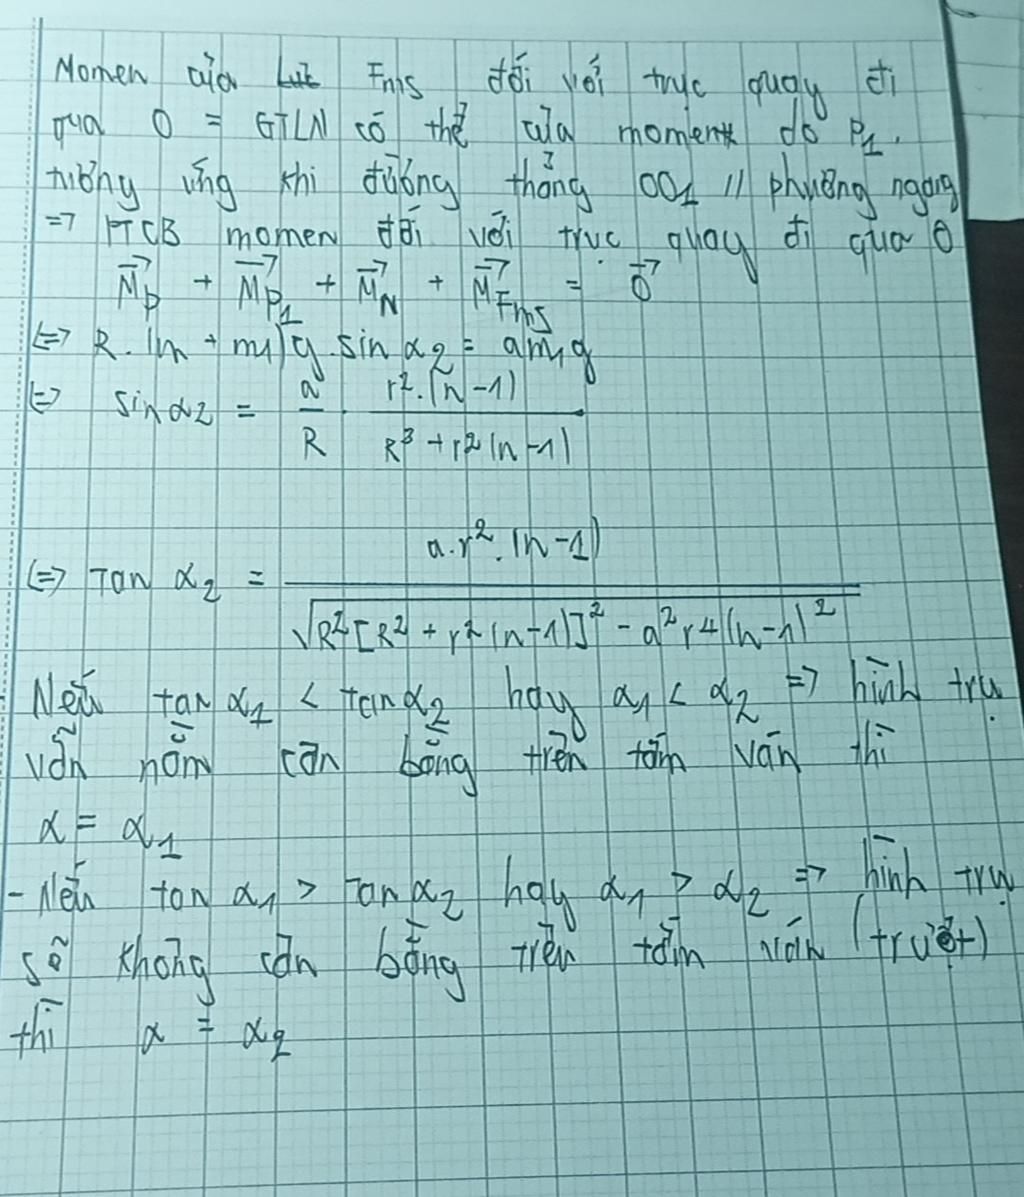 Momen của Fms đối với trục quay đi
qua O = GTLN có thể của moment do P₁.
tương ứng khi đường thẳng OO₁ // phương ngang
=> PTCB momen đối với trục quay đi qua O
M⃗_P + M⃗_P₁ + M⃗_N + M⃗_Fms = 0⃗
<=> R.(m + m₁)g.sin α₂ = am₁g
<=> sin α₂ = a/R . r².(n-1)/(R³ + r²(n-1))
<=> Tan α₂ = a.r².(n-1)/√(R²[R² + r²(n-1)]² - a²r⁴(n-1)²)
Nếu tan α₁ < tan α₂ hay α₁ < α₂ => hình trụ
vẫn nằm cân bằng trên tấm ván thì
α = α₁
- Nếu tan α₁ > Tan α₂ hay α₁ > α₂ => hình trụ
sẽ không cân bằng trên tấm ván (trượt)
thì α = α₂